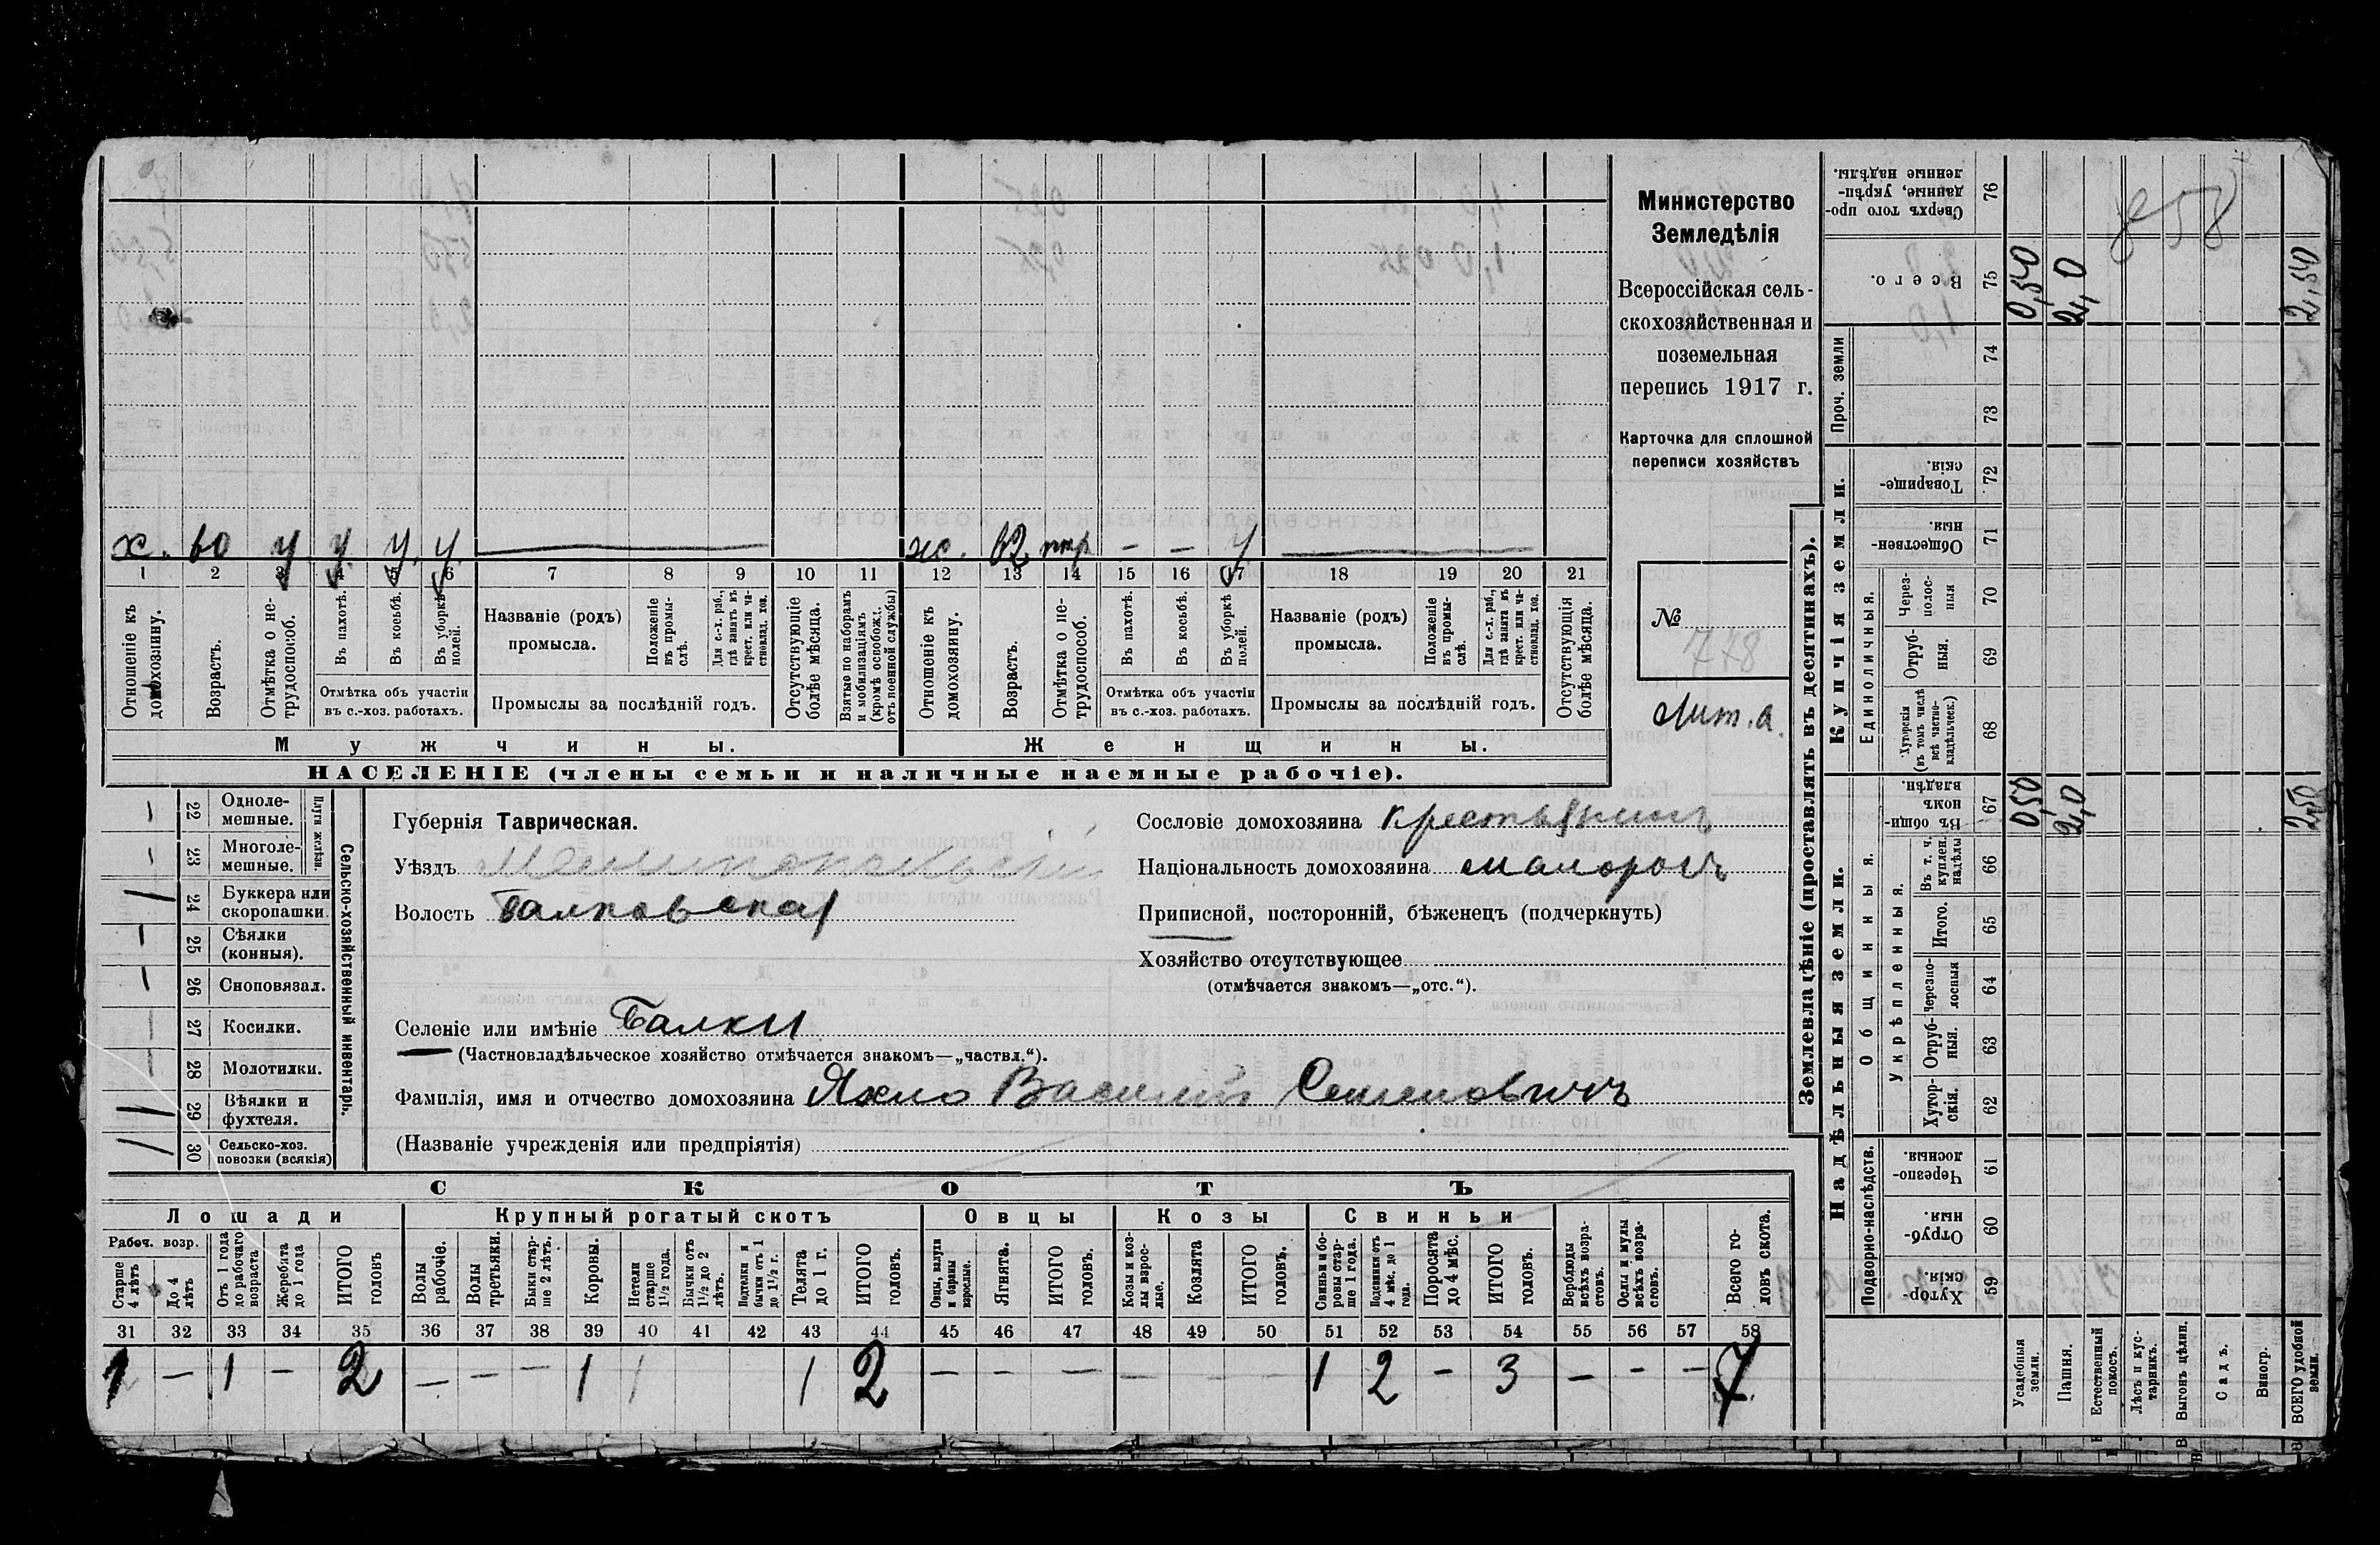 Министерство
Земледѣлія
Всероссійская сель-
скохозяйственная и
поземельная
перепись 1917 г.
Карточка для сплошной
переписи хозяйствъ
№ 778
Лит. а.
х. 60 у у. у. у.
ж. 62 — — у
1 2 3 4 5 6 7 8 9 10 11 12 13 14 15 16 17 18 19 20 21
Отношеніе къ домохозяину.
Возрастъ.
Отмѣтка о не-трудоспособ.
Въ пахотѣ.
Въ косьбѣ.
Въ уборкѣ полей.
Отмѣтка объ участіи
въ с.-хоз. работахъ.
Названіе (родъ)
промысла.
Положеніе въ промы-слѣ.
Для с.-х. раб., гдѣ занятъ въ крест. или ча-стновлад. хоз.
Промыслы за послѣдній годъ.
Отсутствующіе болѣе мѣсяца.
Взятые по наборамъ и мобилизаціямъ (кромѣ освобожд. отъ военной службы)
Отношеніе къ домохозяину.
Возрастъ.
Отмѣтка о не-трудоспособ.
Въ пахотѣ.
Въ косьбѣ.
Въ уборкѣ полей.
Отмѣтка объ участіи
въ с.-хоз. работахъ.
Названіе (родъ)
промысла.
Положеніе въ промы-слѣ.
Для с.-х. раб., гдѣ занята въ крест. или ча-стновлад. хоз.
Промыслы за послѣдній годъ.
Отсутствующія болѣе мѣсяца.
Мужчины.
Женщины.
НАСЕЛЕНІЕ (члены семьи и наличные наемные рабочіе).
Сельско-хозяйственный инвентарь.
Плуги желѣзн.
— 22 Одноле-мешные.
— 23 Многоле-мешные.
1 24 Буккера или скоропашки.
— 25 Сѣялки (конныя).
— 26 Сноповязал.
— 27 Косилки.
— 28 Молотилки.
1 29 Вѣялки и фухтеля.
1 30 Сельско-хоз. повозки (всякія)
Губернія Таврическая.
Уѣздъ Мелитопольскій
Волость Балковская
Сословіе домохозяина крестьянинъ
Національность домохозяина малоросъ
Приписной, посторонній, бѣженецъ (подчеркнуть)
Хозяйство отсутствующее
(отмѣчается знакомъ—„отс.“).
Селеніе или имѣніе Балки
(Частновладѣльческое хозяйство отмѣчается знакомъ—„частвл.“).
Фамилія, имя и отчество домохозяина Яхно Василій Семеновичъ
(Названіе учрежденія или предпріятія)
СКОТЪ
Лошади
Крупный рогатый скотъ
Овцы
Козы
Свиньи
Рабоч. возр.
Старше 4 лѣтъ
До 4 лѣтъ
Отъ 1 года до рабочаго возраста
Жеребята до 1 года
ИТОГО головъ
Волы рабочіе.
Волы третьяки.
Быки стар-ше 2 лѣтъ.
Коровы.
Нетели старше 1½ года.
Бычки отъ 1½ до 2 лѣтъ.
Подтелки и бычки отъ 1 до 1½ г.
Телята до 1 г.
ИТОГО головъ.
Овцы, валухи и бараны взрослые.
Ягнята.
ИТОГО головъ.
Козы и коз-лы взрос-лые.
Козлята
ИТОГО головъ.
Свиньи и бо-ровы стар-ше 1 года.
Подсвинки отъ 4 мѣс. до 1 года.
Поросята до 4 мѣс.
ИТОГО головъ.
Верблюды всѣхъ возра-стовъ.
Ослы и мулы всѣхъ возра-стовъ.
Всего го-ловъ скота.
31 32 33 34 35 36 37 38 39 40 41 42 43 44 45 46 47 48 49 50 51 52 53 54 55 56 57 58
1 — 1 — 2 — — — 1 1 1 2 — — — — — — 1 2 — 3 — — — 7
Землевладѣніе (проставлять въ десятинахъ).
Надѣльныя земли.
Купчія земли.
Проч. земли
Подворно-наслѣдств.
Общинныя.
Укрѣпленныя.
Единоличныя.
Хутор-скія. 59
Отруб-ныя. 60
Черезпо-лосныя. 61
Хутор-скія. 62
Отруб-ныя. 63
Черезпо-лосныя 64
Итого. 65
Въ т. ч. куплен. надѣлы 66
Въ общи-номъ владѣн. 67
Хуторскія (въ томъ числѣ всѣ частно-владѣльческ.) 68
Отруб-ныя. 69
Через-полос-ныя 70
Обществен-ныя. 71
Товарище-скія. 72
73
74
Всего. 75
Сверхъ того про-данные, укрѣп-ленные надѣлы. 76
Усадебныя земли. 0,50 0,50
Пашня. 2,0 2,0
Естественный покосъ.
Лѣсъ и кус-тарникъ.
Выгонъ цѣлин.
Садъ.
Виногр.
ВСЕГО удобной земли. 2,50 2,50